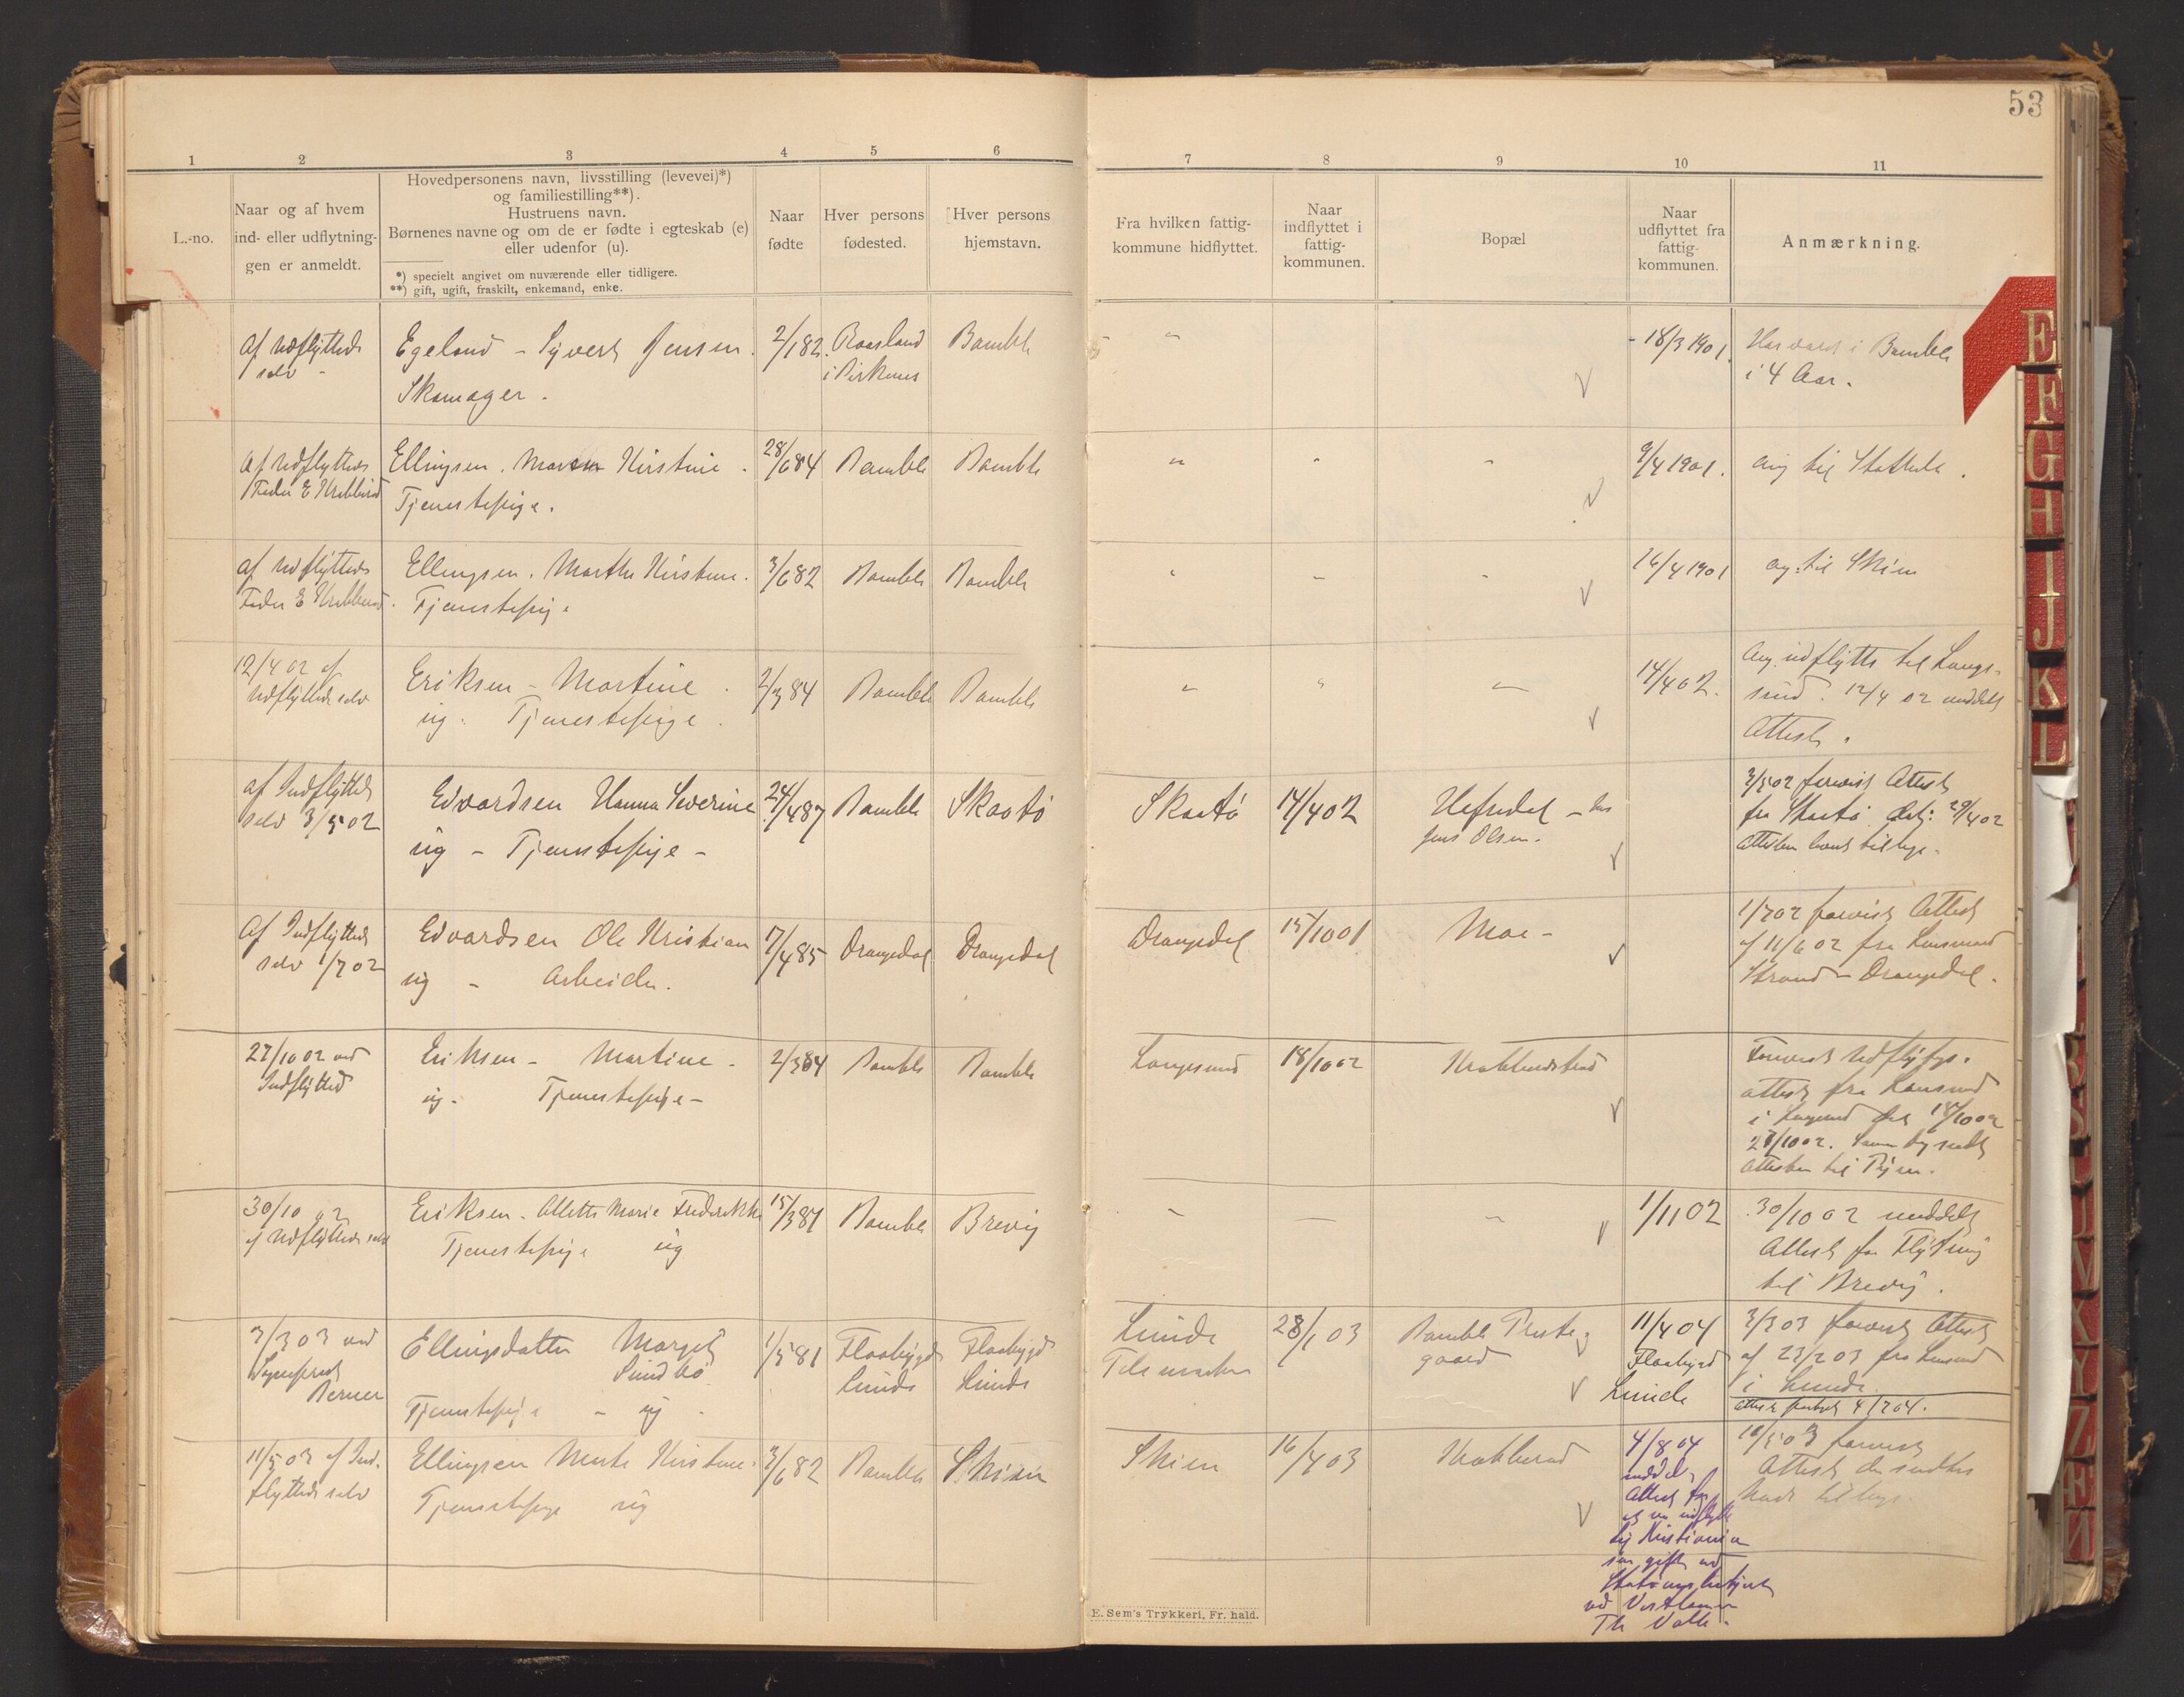 53
1 2 3 4 5 6 7 8 9 10 11
L.-no.
Naar og af hvem
ind- eller udflytnin-
gen er anmeldt.
Hovedpersonens navn, livsstilling (levevei)*)
og familiestilling**).
Hustruens navn.
Børnenes navne og om de er fødte i egteskab (e)
eller udenfor (u).
*) specielt angivet om nuværende eller tidligere.
**) gift, ugift, fraskilt, enkemand, enke.
Naar
fødte
Hver persons
fødested.
Hver persons
hjemstavn.
Fra hvilken fattig-
kommune hidflyttet.
Naar
indflyttet i
fattig-
kommunen.
Bopæl
Naar
udflyttet fra
fattig-
kommunen.
Anmærkning.
Af Udflyttede
selv -
Egeland - Syvert Jensen
Skomager.
2/1 82.
i Birkenes
Bamble
- 18/3 1901.
Har været i Bamble
i 4 Aar.
Af Udflyttedes
Fader E
Ellingsen. Kirstine.
Tjenestepige.
28/6 84
Bamble
Bamble
9/4 1901.
ang til Stathele.
af Udflyttedes
Fader E
Ellingsen. Marthe Kirstine.
Tjenestepige
3/6 82
Bamble
Bamble
16/4 1901
ang. til Skien
12/4 02 af
Udflyttede selv
Eriksen - Martine
ug. Tjenestepige.
2/3 84
Bamble
Bamble
14/4 02.
Ang. udflytte til Lange-
sund. 12/4 02 meddelt
Attest.
af Indflyttede
selv 3/5 02
Edvardsen Hanna Severine
ug - Tjenestepige -
24/4 87
Bamble
Skaatø
Skaatø
14/4 02
- hos
Jens Olsen.
3/5 02 forevist Attest
fra Skaatø dat: 29/4 02
Attesten levert tilbage.
Af Indflyttede
selv 1/7 02
Edvardsen Ole Kristian
ug - Arbeider.
17/4 85
Drangedal
Drangedal
Drangedal
15/10 01
Moe -
1/7 02 forevist Attest
af 11/6 02 fra Lensmand
Strand - Drangedal.
27/10 02 ved
Indflyttede
Eriksen - Martine -
ug. Tjenestepige -
2/3 84
Bamble
Bamble
Langesund
18/10 02
Forevist Udflytgs.
attest fra Lensmand
i Langesund dat 18/10 02
27/10 02.
Attesten til
30/10 02
af Udflyttede selv
Eriksen. Alette Marie Frederikke
Tjenestepige ug
15/3 87
Bamble
Brevig
1/11 02
30/10 02 meddelt
Attest for Flytning
til Brevig.
3/3 03 ved
Berner
Ellingsdatter Margit
Sundbø
Tjenestepige - ug.
1/5 81
Flaabygd
Lunde
Flaabygd
Lunde
Lunde
Telemarken
28/1 03
Bamble Preste-
gaard
11/4 04
Flaabygd
Lunde
3/3 03 forevist Attest
af 23/2 03 fra Lensmand
i Lunde
11/5 03 af Ind-
flyttede selv
Ellingsen Marte Kirstine.
Tjenestepige ug
3/6 82
Bamble
Skien
Skien
16/4 03
4/8 04
meddelt
Attest for
til Kristiania
som gift med
ved
Th Valle.
forevist
Attest
tilbage.
E. Sem's Trykkeri, Fr. hald.
E
F
G
H
I
J
K
L